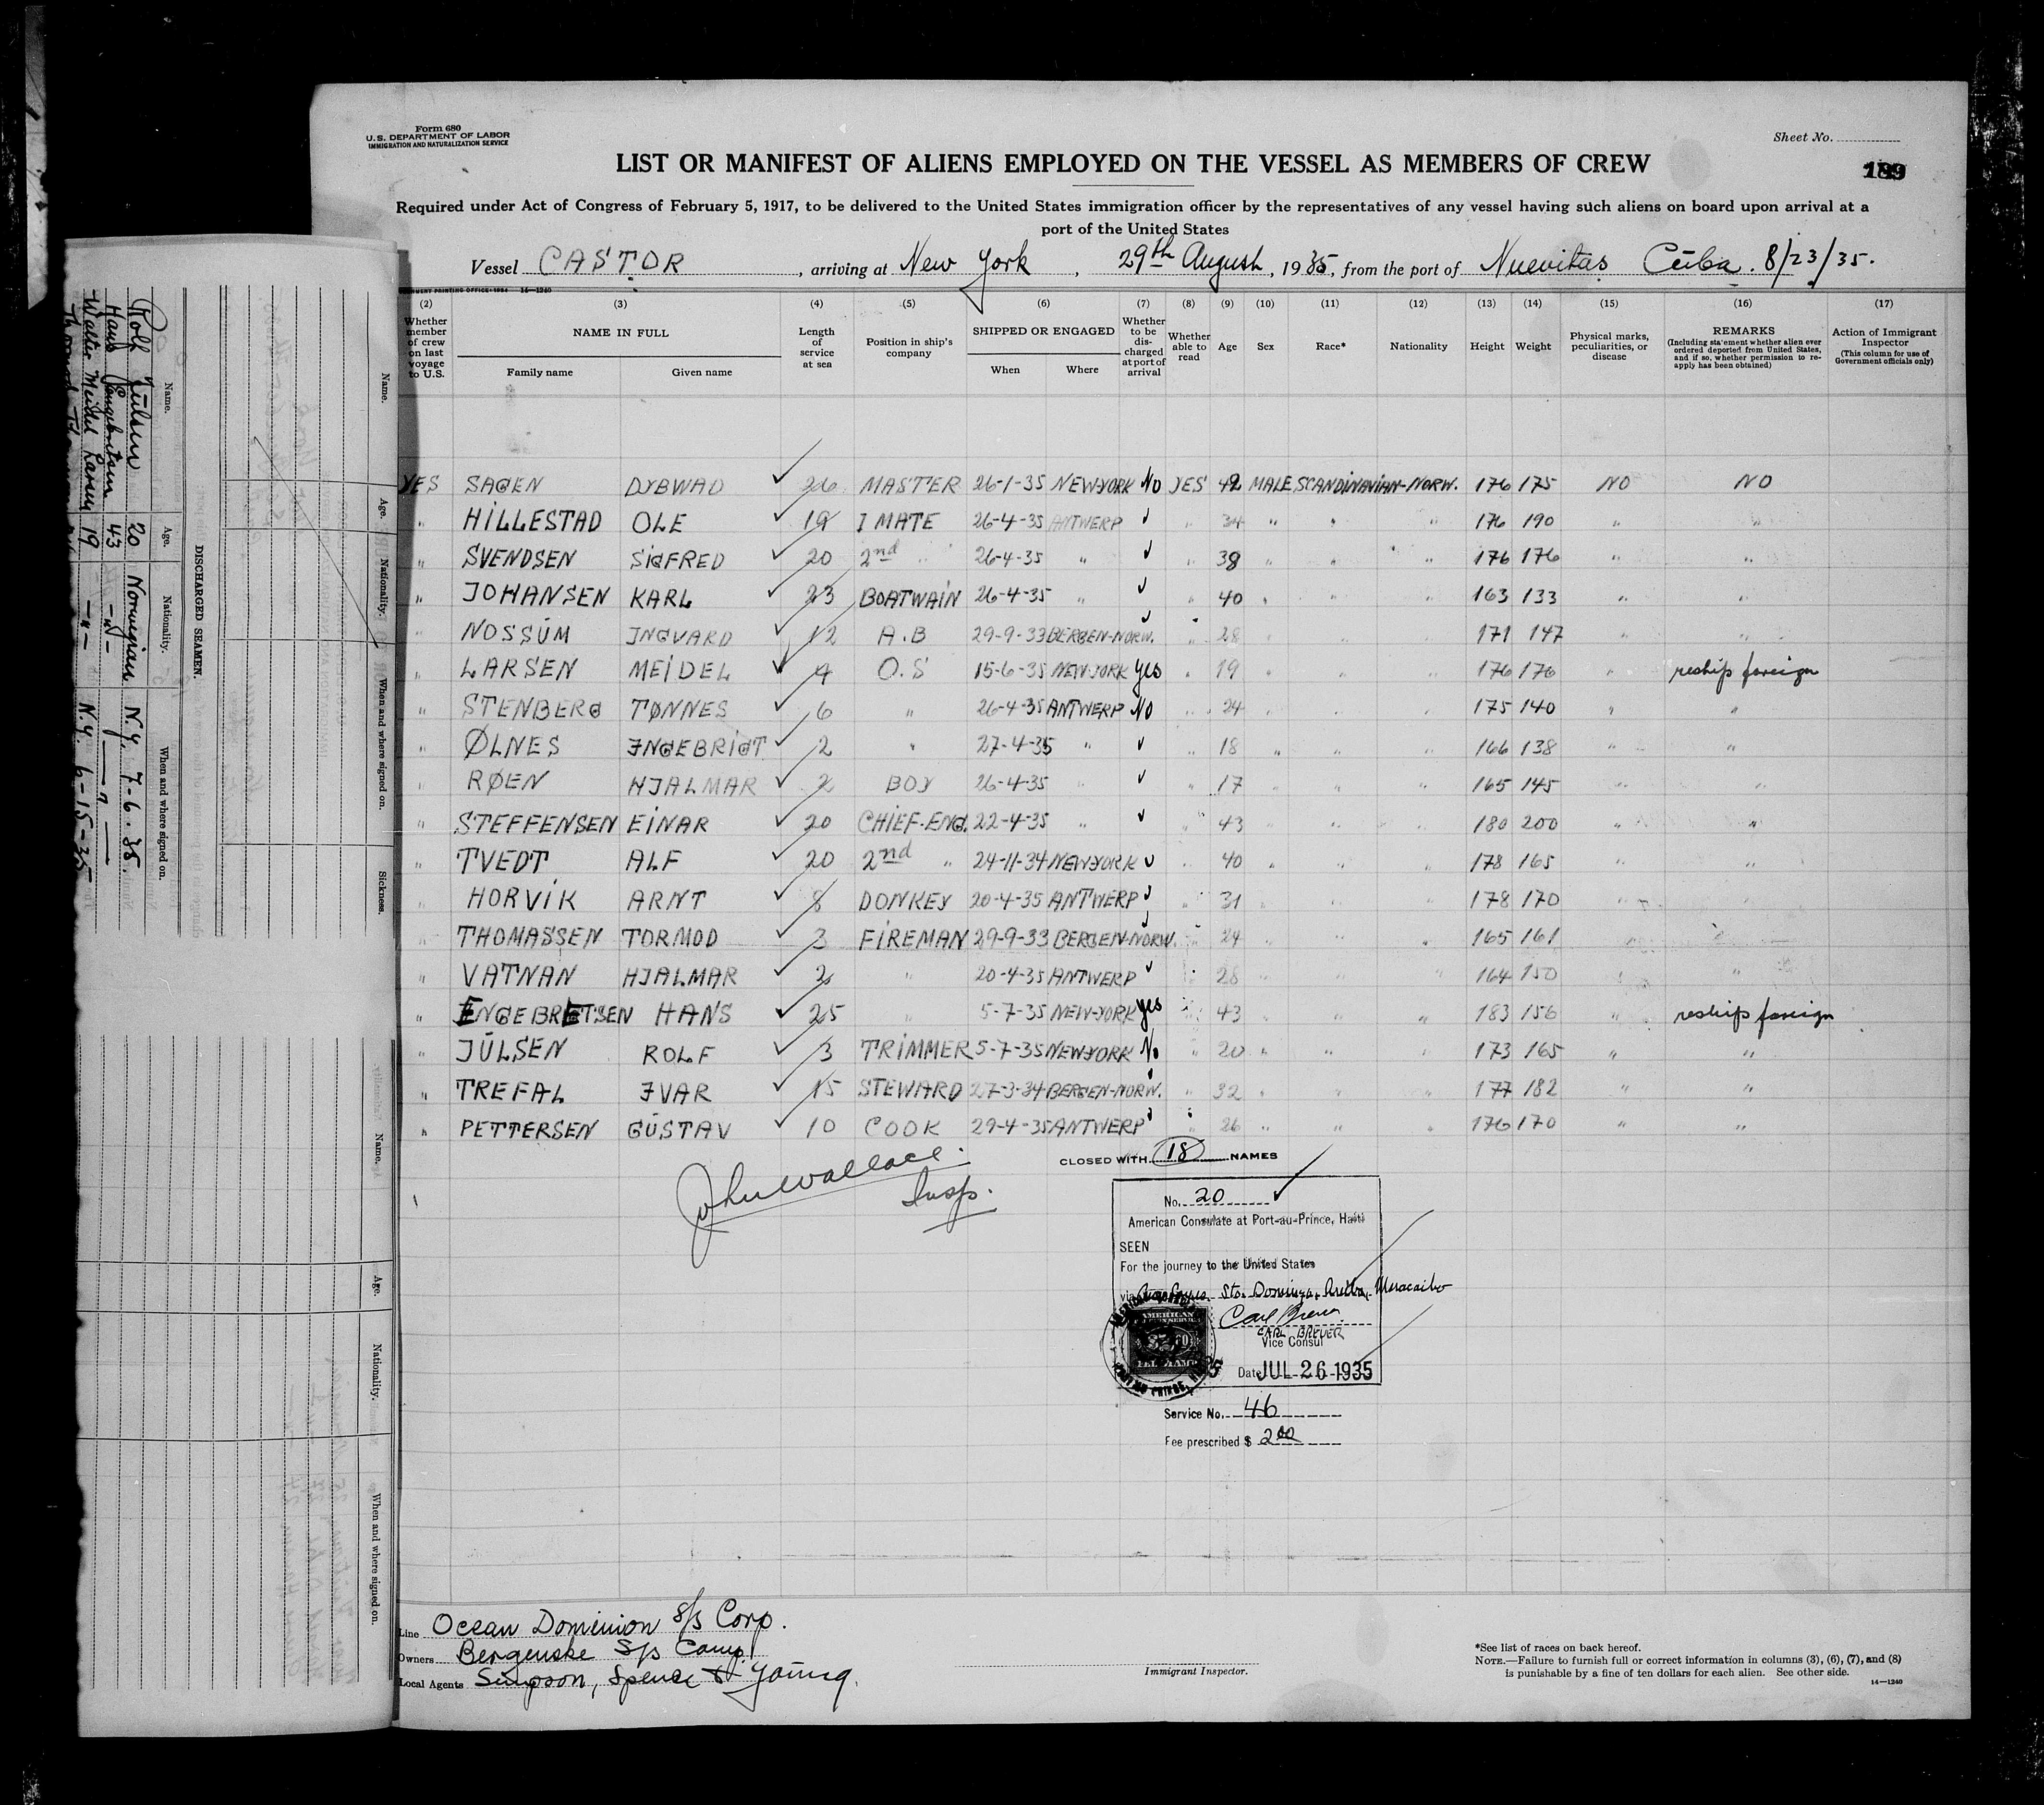 Form 680
U.S. DEPARTMENT OF LABOR
IMMIGRATION AND NATURALIZATION SERVICE
Sheet No.
LIST OR MANIFEST OF ALIENS EMPLOYED ON THE VESSEL AS MEMBERS OF CREW
189
Required under Act of Congress of February 5, 1917, to be delivered to the United States immigration officer by the representatives of any vessel having such aliens on board upon arrival at a
port of the United States
Vessel CASTOR, arriving at New York, 29th August, 1935, from the port of Nuevitas Cuba. 8/23/35.
(2) (3) (4) (5) (6) (7) (8) (9) (10) (11) (12) (13) (14) (15) (16) (17)
Whether member of crew on last voyage to U.S.
NAME IN FULL
Family name Given name
Length of service at sea
Position in ship's company
SHIPPED OR ENGAGED
When Where
Whether to be discharged at port of arrival
Whether able to read
Age
Sex
Race*
Nationality
Height
Weight
Physical marks, peculiarities, or disease
REMARKS
(Including statement whether alien ever ordered deported from United States, and if so, whether permission to re-apply has been obtained)
Action of Immigrant Inspector
(This column for use of Government officials only)
YES SAGEN DYBWAD ✓ 26 MASTER 26-1-35 NEW-YORK No YES 42 MALE SCANDINAVIAN-NORW. 176 175 NO NO
" HILLESTAD OLE ✓ 19 I MATE 26-4-35 ANTWERP ✓ " 34 " " " 176 190 " "
" SVENDSEN SIGFRED ✓ 20 2nd " 26-4-35 " ✓ " 38 " " " 176 176 " "
" JOHANSEN KARL ✓ 23 BOATWAIN 26-4-35 " ✓ " 40 " " " 163 133 " "
" NOSSUM INGVARD ✓ 12 A.B 29-9-33 BERGEN-NORW. ✓ " 28 " " " 171 147 " "
" LARSEN MEIDEL ✓ 4 O.S 15-6-35 NEW-YORK yes " 19 " " " 176 176 " reship foreign
" STENBERG TØNNES ✓ 6 " 26-4-35 ANTWERP NO " 24 " " " 175 140 " "
" ØLNES INGEBRIGT ✓ 2 " 27-4-35 " ✓ " 18 " " " 166 138 " "
" RØEN HJALMAR ✓ 2 BOY 26-4-35 " ✓ " 17 " " " 165 145 " "
" STEFFENSEN EINAR ✓ 20 CHIEF-ENG. 22-4-35 " ✓ " 43 " " " 180 200 " "
" TVEDT ALF ✓ 20 2nd " 24-11-34 NEW-YORK ✓ " 40 " " " 178 165 " "
" HORVIK ARNT ✓ 8 DONKEY 20-4-35 ANTWERP ✓ " 31 " " " 178 170 " "
" THOMASSEN TORMOD ✓ 3 FIREMAN 29-9-33 BERGEN-NORW. ✓ " 24 " " " 165 161 " "
" VATNAN HJALMAR ✓ 2 " 20-4-35 ANTWERP ✓ " 28 " " " 164 150 " "
" ENGEBRETSEN HANS ✓ 25 " 5-7-35 NEW-YORK yes " 43 " " " 183 156 " reship foreign
" JÜLSEN ROLF ✓ 3 TRIMMER 5-7-35 NEW-YORK No " 20 " " " 173 165 " "
" TREFAL IVAR ✓ 15 STEWARD 27-3-34 BERGEN-NORW. " 32 " " " 177 182 " "
" PETTERSEN GUSTAV ✓ 10 COOK 29-4-35 ANTWERP ✓ " 26 " " " 176 170 " "
CLOSED WITH 18 NAMES
John Wallace.
Insp.
No. 20 ✓
American Consulate at Port-au-Prince, Haiti
SEEN
For the journey to the United States
via Sto. Domingo, Aruba, Maracaibo
Carl Breuer
CARL BREUER
Vice Consul
Date JUL 26 1935
Service No. 46
Fee prescribed $ 2.00
Line Ocean Dominion S/S Corp.
Owners Bergenske S/S Comp.
Local Agents Simpson, Spence & Young.
Immigrant Inspector.
*See list of races on back hereof.
NOTE.—Failure to furnish full or correct information in columns (3), (6), (7), and (8)
is punishable by a fine of ten dollars for each alien. See other side.
14—1240
DISCHARGED SEAMEN.
Name. Age. Nationality. When and where signed on.
Rolf Julsen 20 Norwegian N.Y. 7-6-35.
Hans Engebretsen 43 -"- -"-
Walter Meidel Larsen 19 -"- N.Y. 6-15-35
Name. Age. Nationality. When and where signed on. Sickness.
Name. Age. Nationality. When and where signed on.